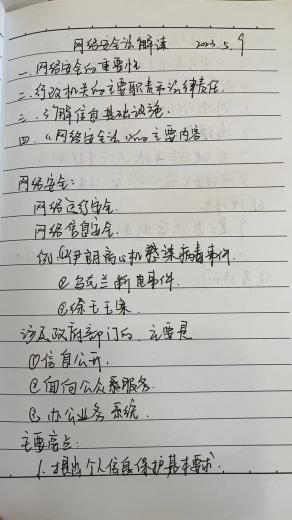 网络安全法解读 2023.5.9
一.网络安全的重要性
二.行政机关的主要职责示法律责任
三.了解信息基础设施.
四.《网络安全法》的主要内容
网络安全:
网络运行安全.
网络信息安全.
例:①伊朗离心机 病毒事件.
②乌克兰断电事件.
③徐玉玉案.
涉及政府部门的主要是
①信息公开.
②面向公众服务.
③办公业务系统.
主要亮点:
1.提出个人信息保护基本要求.